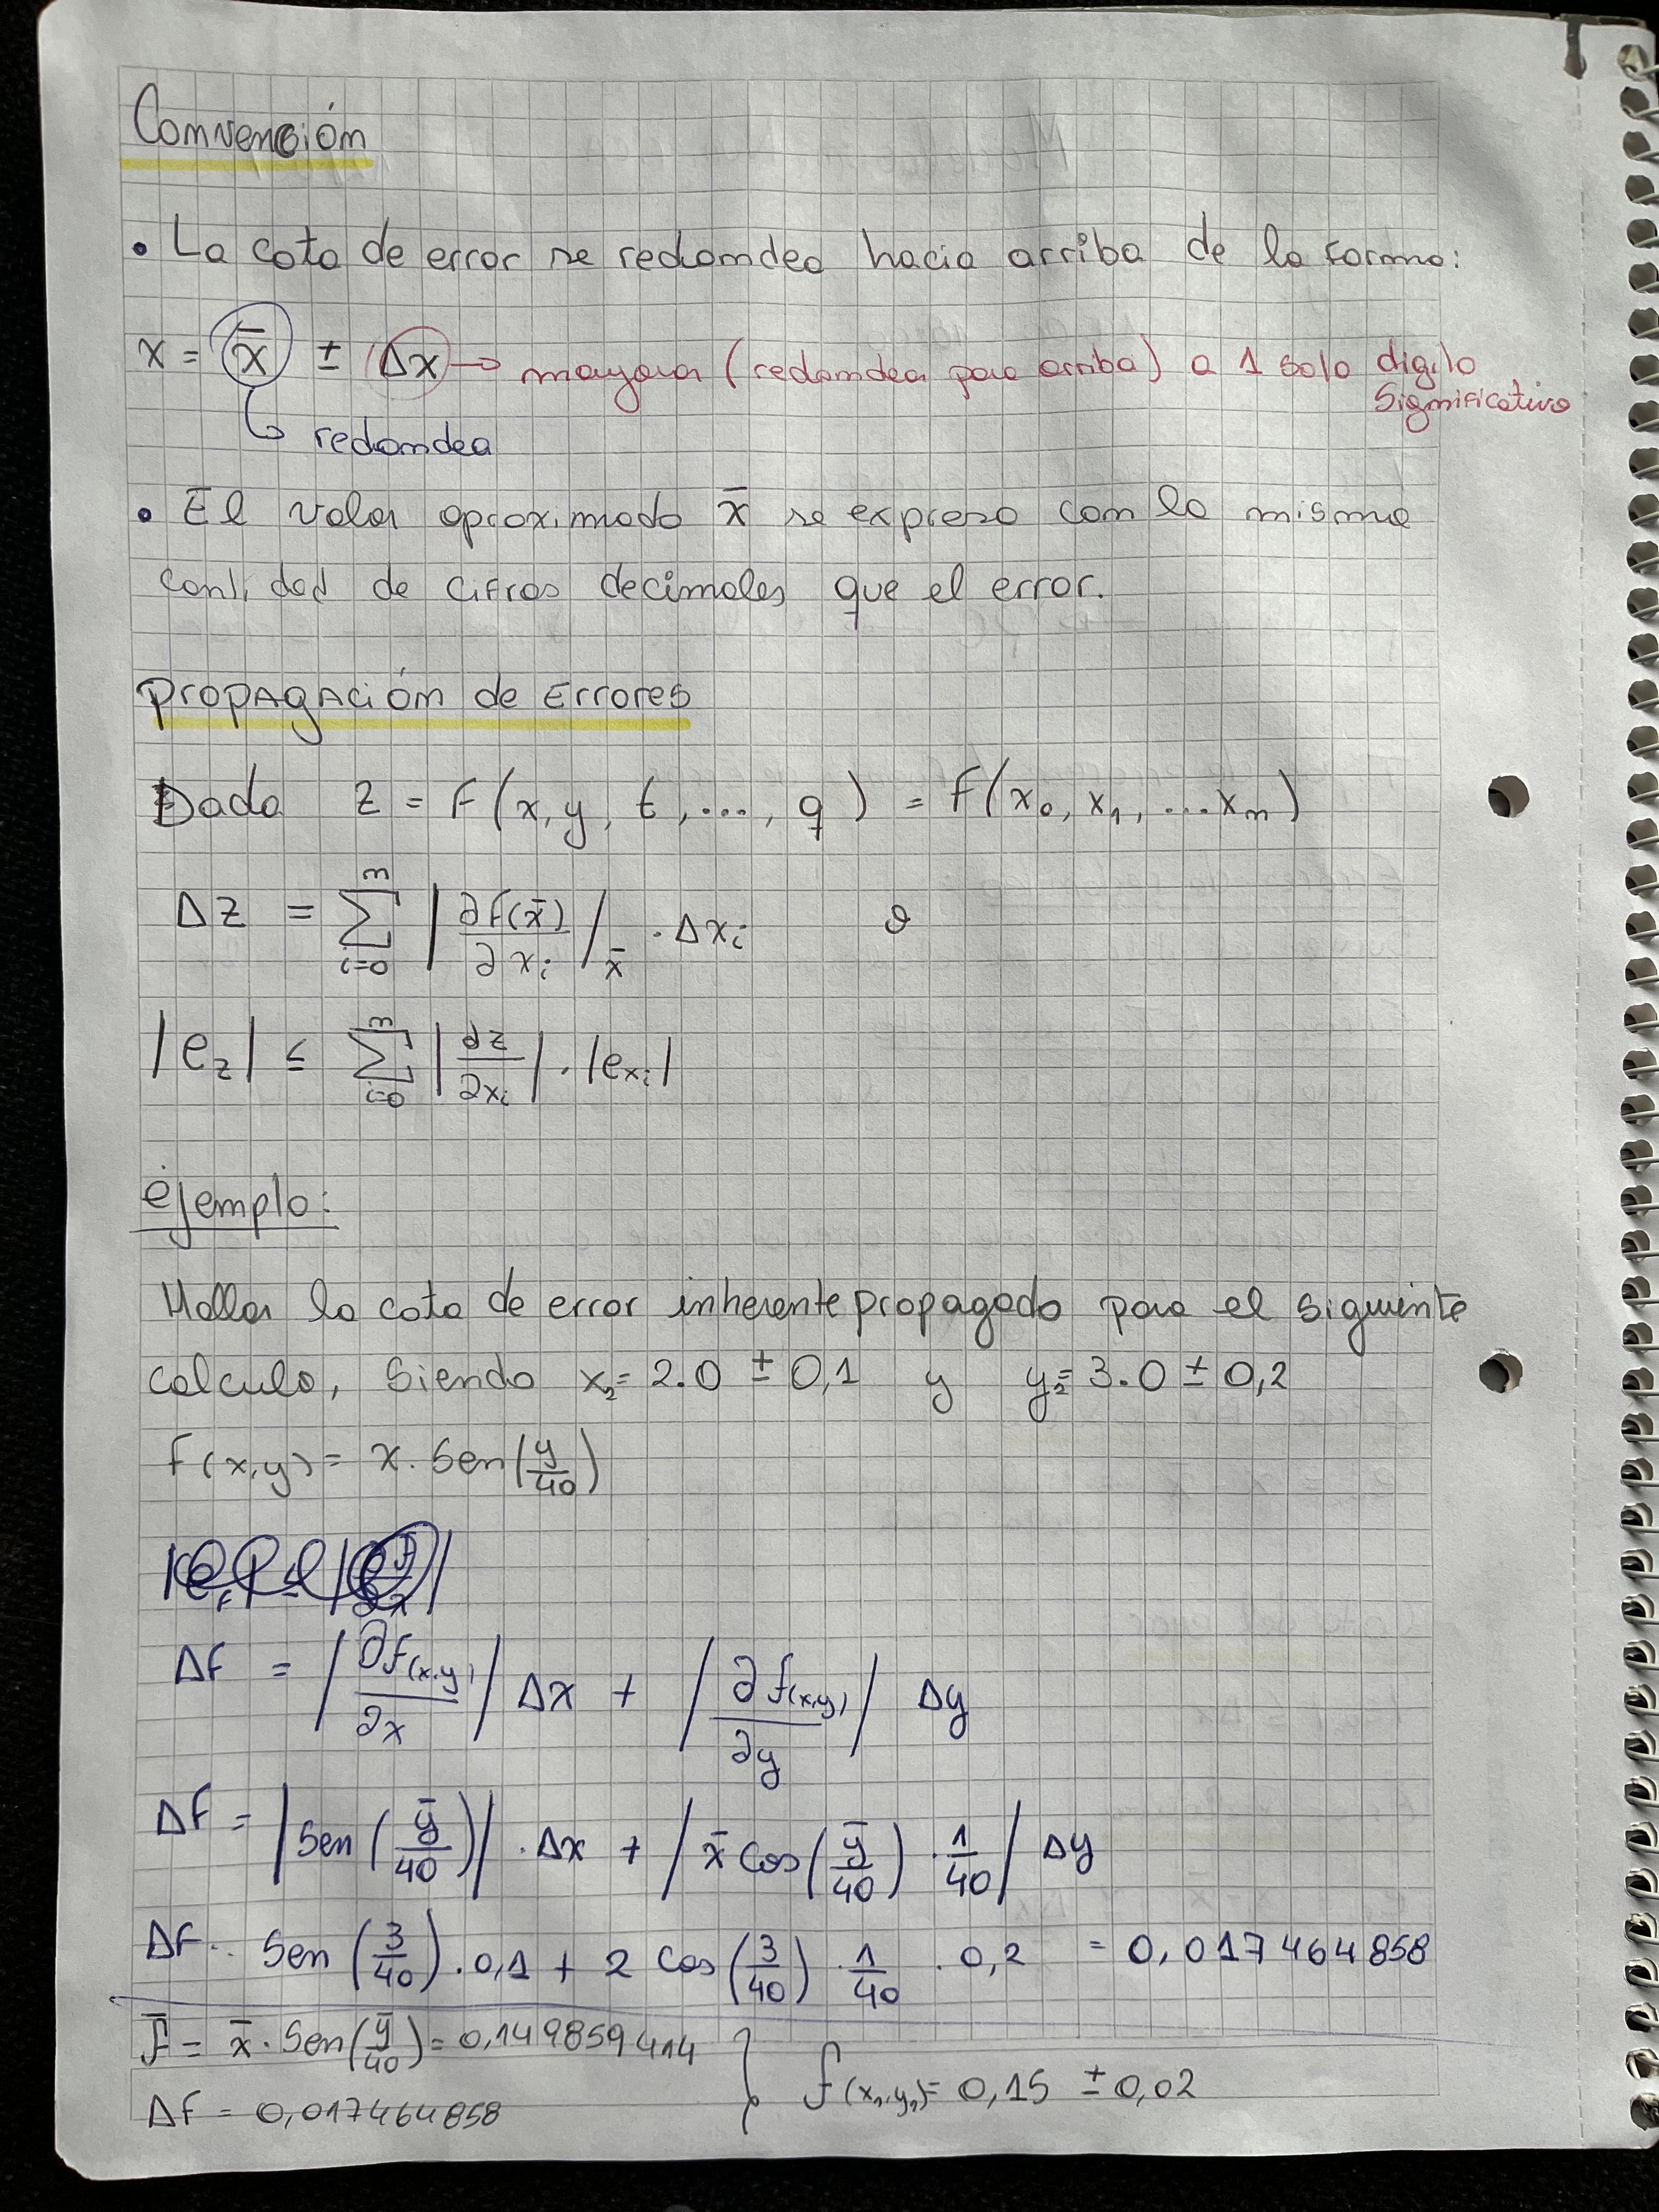 Convención
• La cota de error se redondea hacia arriba de la forma:
x = x̄ ± Δx → mayora (redondea para arriba) a 1 solo digito
significativo
↳ redondea
• El valor aproximado x̄ se expresa con la misma
cantidad de cifras decimales que el error.
Propagación de Errores
Dada z = F(x, y, t, ..., q) = F(x₀, x₁, ... xₙ)
Δz = Σ_{i=0}^{n} |∂f(x̄)/∂xᵢ|_x̄ · Δxᵢ ∂
|e_z| ≤ Σ_{i=0}^{n} |∂z/∂xᵢ| · |e_{xᵢ}|
ejemplo:
Hallar la cota de error inherente propagado para el siguiente
calculo, siendo x₂ = 2.0 ± 0,1 y y₂ = 3.0 ± 0,2
f(x,y) = x. Sen(y/40)
Δf = |∂f(x,y)/∂x| Δx + |∂f(x,y)/∂y| Δy
Δf = |Sen(ȳ/40)| . Δx + |x̄ cos(ȳ/40) . 1/40| Δy
Δf.. Sen(3/40) . 0,1 + 2 cos(3/40) . 1/40 . 0,2 = 0,017464858
f̄ = x̄ . Sen(ȳ/40) = 0,149859414
Δf = 0,017464858
} f(x₁,y₁) = 0,15 ± 0,02